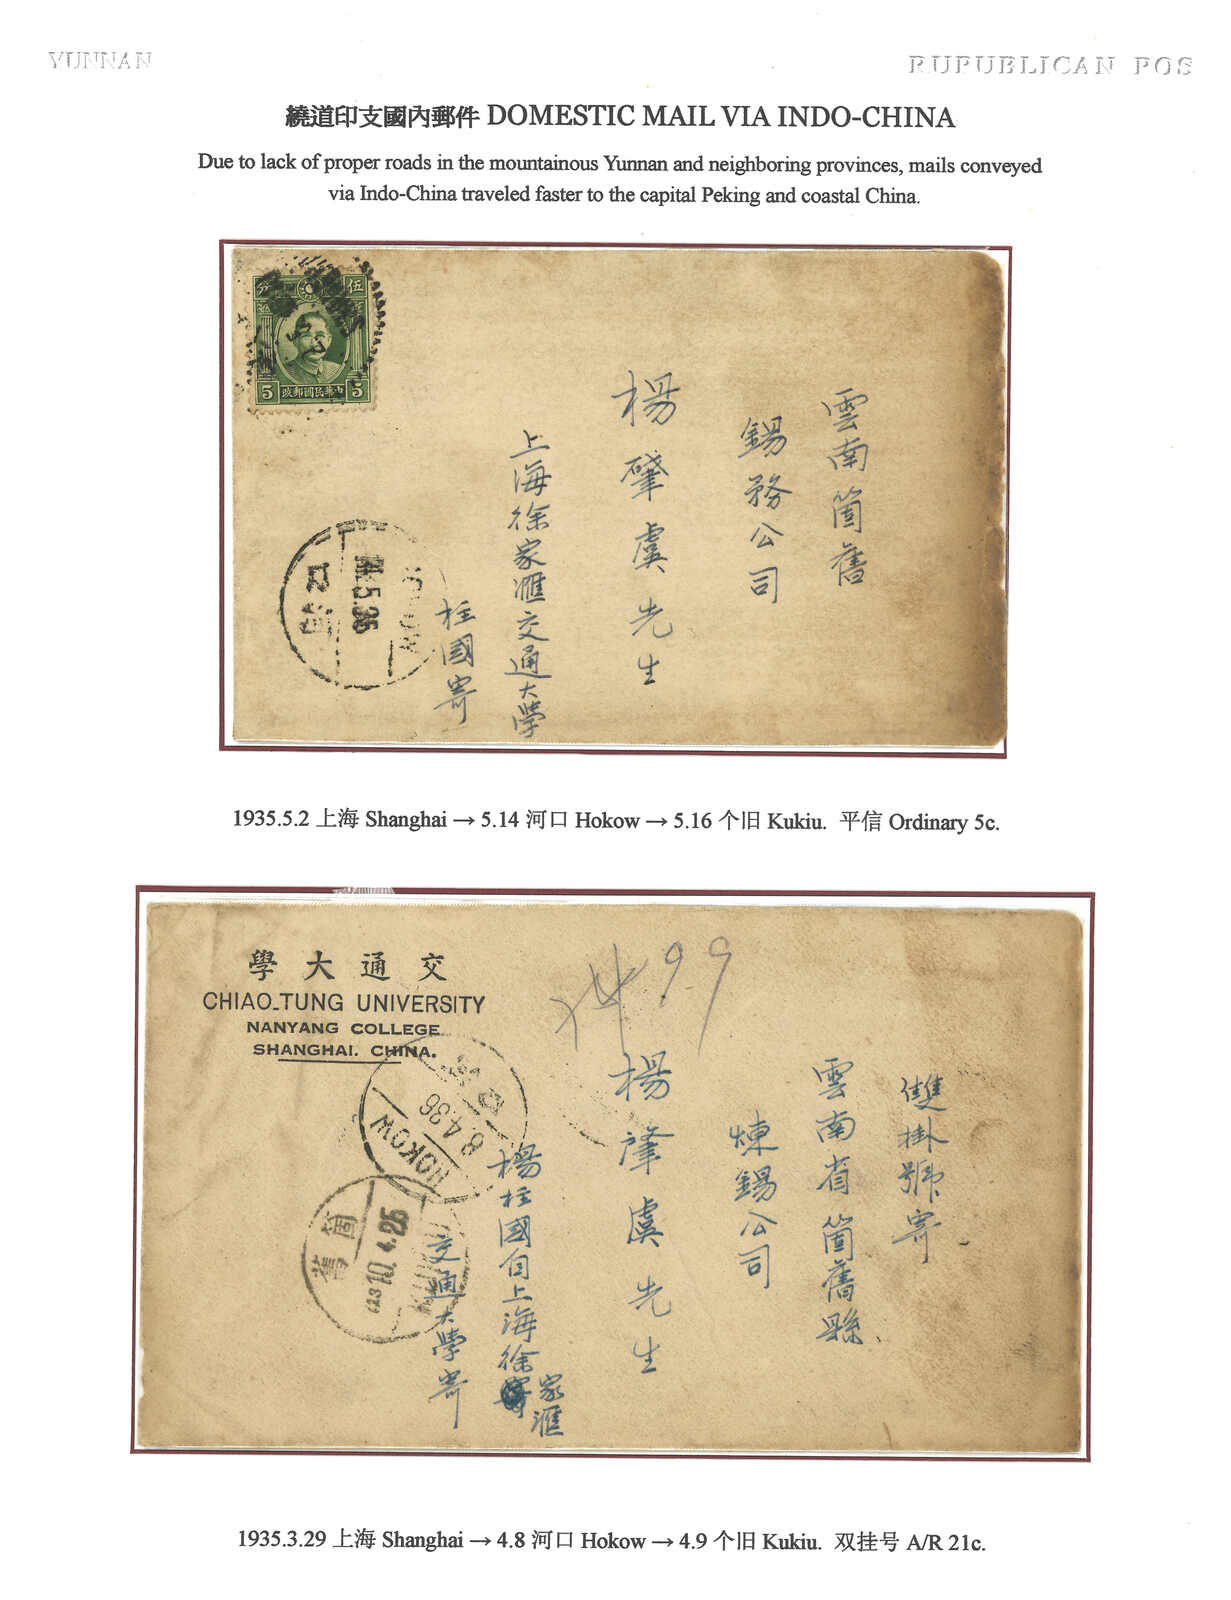 YUNNAN
RUPUBLICAN POS
繞道印支國內郵件 DOMESTIC MAIL VIA INDO-CHINA
Due to lack of proper roads in the mountainous Yunnan and neighboring provinces, mails conveyed
via Indo-China traveled faster to the capital Peking and coastal China.
伍
分
5 政郵國民華中 5
雲南箇舊
錫務公司
楊肇虞先生
上海徐家滙交通大學
柱國寄
口河
5.35
1935.5.2 上海 Shanghai → 5.14 河口 Hokow → 5.16 个旧 Kukiu. 平信 Ordinary 5c.
學大通交
CHIAO-TUNG UNIVERSITY
NANYANG COLLEGE
SHANGHAI. CHINA.
99
雙掛號寄
雲南省箇舊縣
煉錫公司
楊肇虞先生
楊柱國自上海徐家滙
交通大學寄
8.4.36
HOKOW
箇舊
10.4.25
1935.3.29 上海 Shanghai → 4.8 河口 Hokow → 4.9 个旧 Kukiu. 双挂号 A/R 21c.